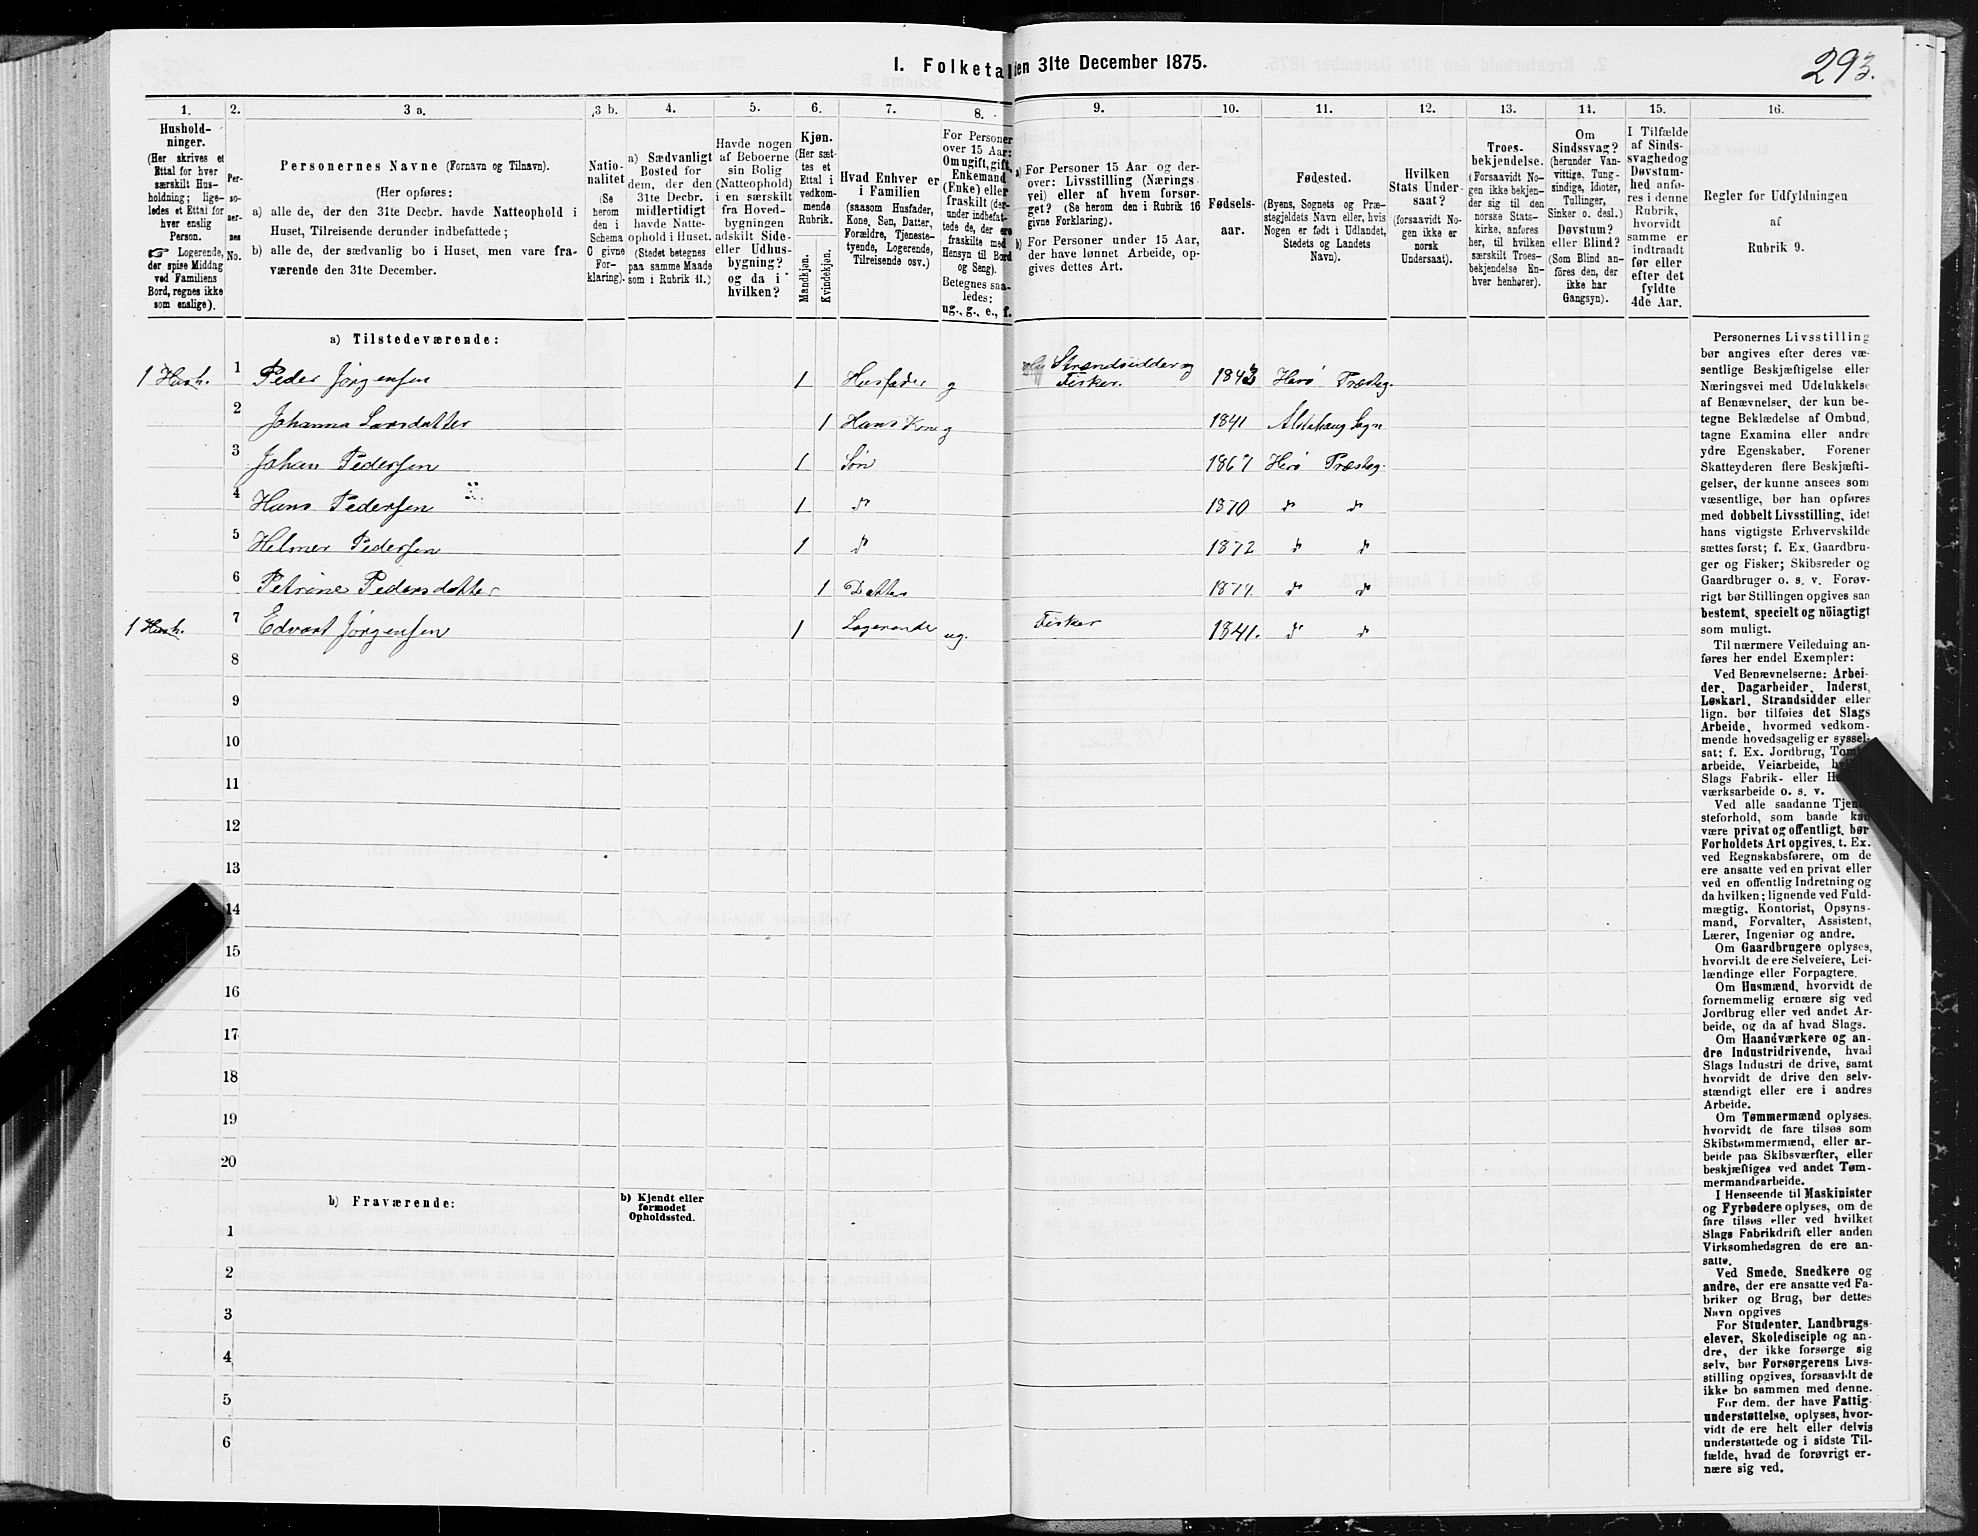 I. Folketal den 31te December 1875.
293.
1.
2.
3 a.
3 b.
4.
5.
6.
7.
8.
9.
10.
11.
12.
13.
14.
15.
16.
Hushold-
ninger.
(Her skrives et
Ettal for hver
særskilt Hus-
holdning; lige-
ledes et Ettal for
hver enslig
Person.
☞ Logerende,
der spise Middag
ved Familiens
Bord, regnes ikke
som enslige).
Per-
so-
ner-
nes
No.
Personernes Navne (Fornavn og Tilnavn).
(Her opføres:
a) alle de, der den 31te Decbr. havde Natteophold i
Huset, Tilreisende derunder indbefattede;
b) alle de, der sædvanlig bo i Huset, men vare fra-
værende den 31te December.
Natio-
nalitet
(Se
herom
den i
Schema
O givne
For-
klaring).
a) Sædvanligt
Bosted for
dem, der den
31te Decbr.
midlertidigt
havde Natte-
ophold i Huset.
(Stedet betegnes
paa samme Maade
som i Rubrik 11.)
Havde nogen
af Beboerne
sin Bolig
(Natteophold)
i en særskilt
fra Hoved-
bygningen
adskilt Side-
eller Udhus-
bygning?
og da i
hvilken?
Kjøn.
(Her sæt-
tes et
Ettal i
vedkom-
mende
Rubrik.
Mandkjøn.
Kvindekjøn.
Hvad Enhver er
i Familien
(saasom Husfader,
Kone, Søn, Datter,
Forældre, Tjeneste-
tyende, Logerende,
Tilreisende osv.)
For Personer
over 15 Aar:
Om ugift, gift,
Enkemand
(Enke) eller
fraskilt (der-
under indbefat-
tede de, der ere
fraskilte med
Hensyn til Bord
og Seng).
Betegnes saa-
ledes:
ug., g., e., f.
a) For Personer 15 Aar og der-
over: Livsstilling (Nærings-
vei) eller af hvem forsør-
get? (Se herom den i Rubrik 16
givne Forklaring).
b) For Personer under 15 Aar,
der have lønnet Arbeide, op-
gives dettes Art.
Fødsels-
aar.
Fødested.
(Byens, Sognets og Præ-
stegjeldets Navn eller, hvis
Nogen er født i Udlandet,
Stedets og Landets
Navn).
Hvilken
Stats Under-
saat?
(forsaavidt No-
gen ikke er
norsk
Undersaat).
Troes-
bekjendelse.
(Forsaavidt No-
gen ikke bekjen-
der sig til den
norske Stats-
kirke, anføres
her, til hvilken
særskilt Troes-
bekjendelse En-
hver henhører).
Om
Sindssvag?
(herunder Van-
vittige, Tung-
sindige, Idioter,
Tullinger,
Sinker o. desl.)
Døvstum?
eller Blind?
(Som Blind an-
føres den, der
ikke har
Gangsyn).
I Tilfælde
af Sinds-
svaghed og
Døvstum-
hed anfø-
res i denne
Rubrik,
hvorvidt
samme er
indtraadt
før eller
efter det
fyldte
4de Aar.
Regler for Udfyldningen
af
Rubrik 9.
a) Tilstedeværende:
1 Hush. 1 Peder Jørgensen 1 Husfader g Strandsidder og Fisker. 1842 Herø Præsteg.
2 Johanna Larsdatter 1 Hans Kone g 1841 Alstahaug Sogn
3 Johan Pedersen 1 Søn 1867 Herø Præsteg.
4 Hans Pedersen 1 do 1870 do do
5 Helmer Pedersen 1 do 1872 do do
6 Petrine Pedersdatter 1 Datter 1874. do do
1 Hush. 7 Edvart Jørgensen 1 Logerende ug. Fisker 1841. do do
8
9
10
11
12
13
14
15
16
17
18
19
20
b) Fraværende:
b) Kjendt eller
formodet
Opholdssted.
1
2
3
4
5
6
Personernes Livsstilling
bør angives efter deres væ-
sentlige Beskjæftigelse eller
Næringsvei med Udelukkelse
af Benævnelser, der kun be-
tegne Beklædelse af Ombud,
tagne Examina eller andre
ydre Egenskaber. Forener
Skatteyderen flere Beskjæfti-
gelser, der kunne ansees som
væsentlige, bør han opføres
med dobbelt Livsstilling, idet
hans vigtigste Erhvervskilde
sættes først; f. Ex. Gaardbru-
ger og Fisker; Skibsreder og
Gaardbruger o. s. v. Forøv-
rigt bør Stillingen opgives saa
bestemt, specielt og nöiagtigt
som muligt.
Til nærmere Veiledning an-
føres her endel Exempler:
Ved Benævnelserne: Arbei-
der, Dagarbeider, Inderst,
Løskarl, Strandsidder eller
lign. bør tilføies det Slags
Arbeide, hvormed vedkom-
mende hovedsagelig er syssel-
sat; f. Ex. Jordbrug, Tomt-
arbeide, Veiarbeide,
Slags Fabrik- eller
værksarbeide o. s. v.
Ved alle saadanne Tjene-
steforhold, som baade kan
være privat og offentligt, bør
Forholdets Art opgives, t. Ex.
ved Regnskabsførere, om de
ere ansatte ved en privat eller
ved en offentlig Indretning og
da hvilken; lignende ved Fuld-
mægtig, Kontorist, Opsyns-
mand, Forvalter, Assistent,
Lærer, Ingeniør og andre.
Om Gaardbrugere oplyses,
hvorvidt de ere Selveiere, Lei-
lændinge eller Forpagtere.
Om Husmænd, hvorvidt de
fornemmelig ernære sig ved
Jordbrug eller ved andet Ar-
beide, og da af hvad Slags.
Om Haandværkere og an-
dre Industridrivende, hvad
Slags Industri de drive, samt
hvorvidt de drive den selv-
stændigt eller ere i andres
Arbeide.
Om Tømmermænd oplyses,
hvorvidt de fare tilsøs som
Skibstømmermænd, eller ar-
beide paa Skibsværfter, eller
beskjæftiges ved andet Tøm-
mermandsarbeide.
I Henseende til Maskinister
og Fyrbødere oplyses, om de
fare tilsøs eller ved hvilket
Slags Fabrikdrift eller anden
Virksomhedsgren de ere an-
satte.
Ved Smede, Snedkere og
andre, der ere ansatte ved Fa-
briker og Brug, bør dettes
Navn opgives
For Studenter, Landbrugs-
elever, Skoledisciple og an-
dre, der ikke forsørge sig
selv, bør Forsørgerens Livs-
stilling opgives, forsaavidt de
ikke bo sammen med denne.
For dem, der have Fattig-
understøttelse, oplyses, hvor-
vidt de ere helt eller delvis
understøttede og i sidste Til-
fælde, hvad de forøvrigt er-
nære sig ved.